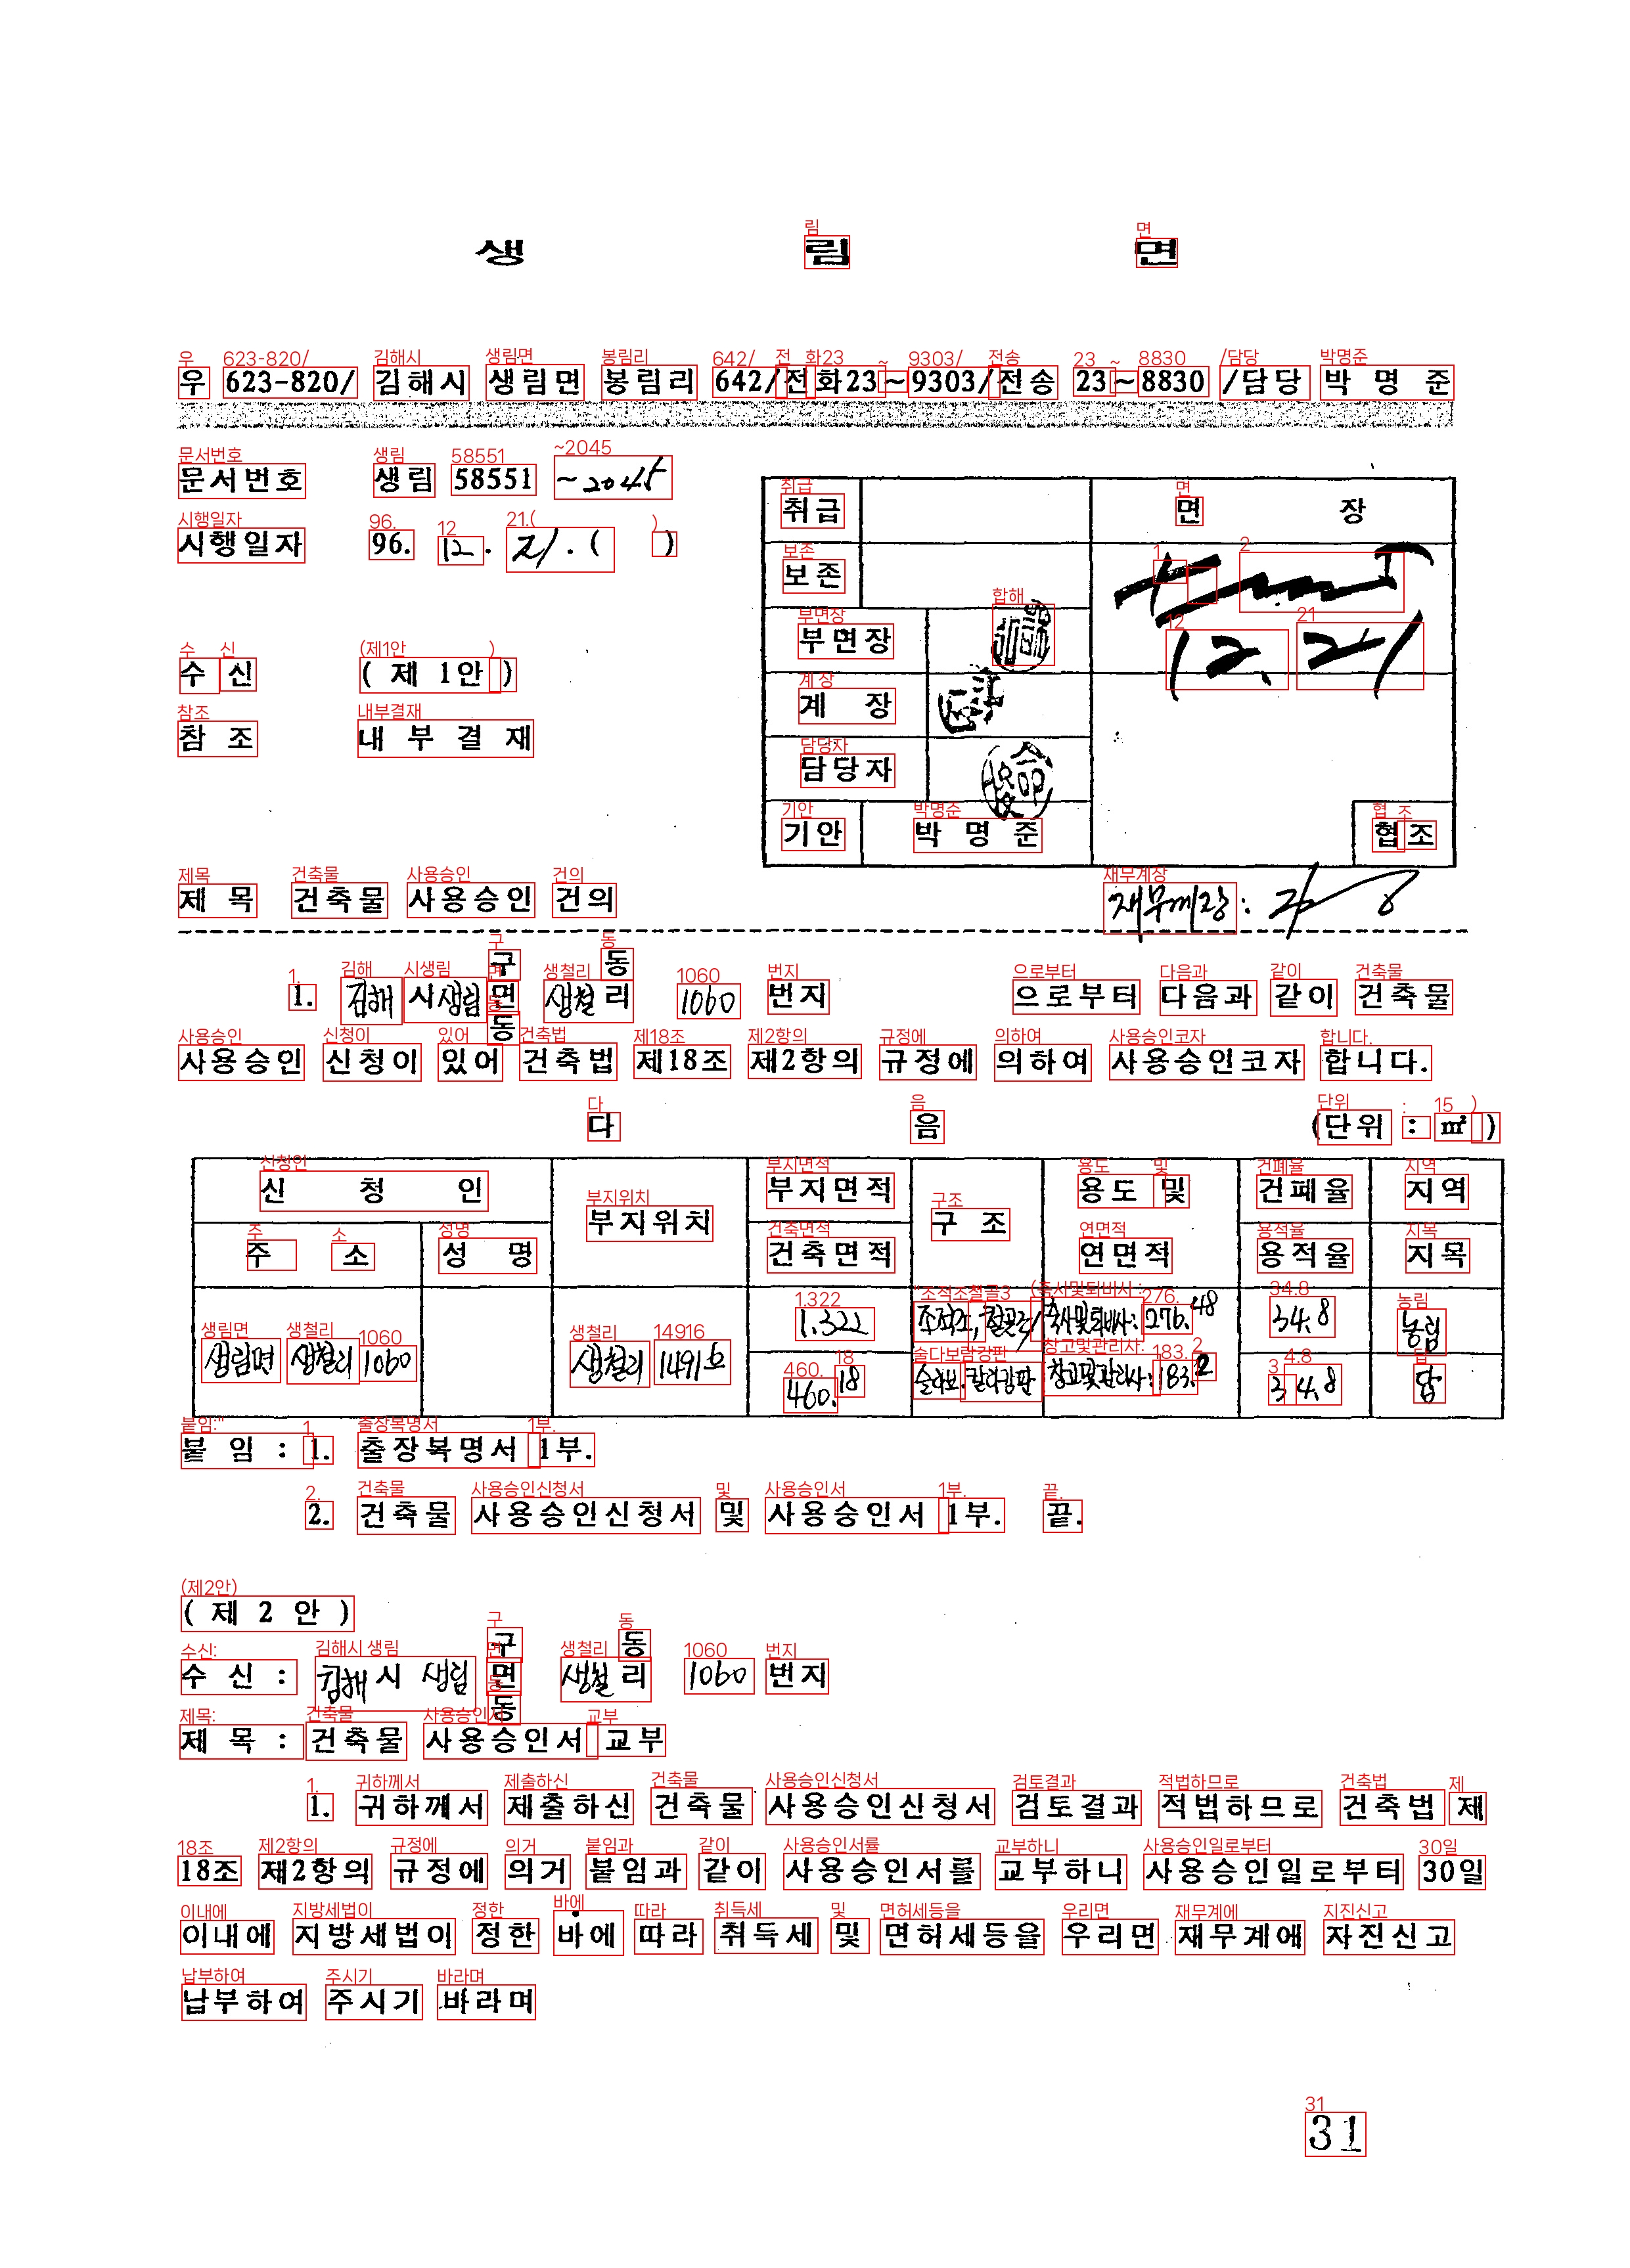 생 림 면
우 623-820/ 김해시 생림면 봉림리 642/전화23~9303/전송 23~8830 /담당 박 명 준
문서번호 생림 58551 ~2045
시행일자 96. 12. 21. ( )
수 신 ( 제 1안 )
참 조 내 부 결 재
취급 면 장
보존
부면장
계 장
담당자
기안 박 명 준 협조
12. 21
제 목 건축물 사용승인 건의
재무계장 :
구 동
1. 김해시 생림면 생철리 1060 번지 으로부터 다음과 같이 건축물
동
사용승인 신청이 있어 건축법 제18조 제2항의 규정에 의하여 사용승인코자 합니다.
다 음 (단위 : ㎡)
신 청 인 부지위치 부지면적 구 조 용도 및 건폐율 지역
주 소 성 명 건축면적 연면적 용적율 지목
생림면 생철리 1060 생철리 1491 1.322 조적조, 철골조/ 축사및퇴비사: 276.48 34.8 농림
460.18 슬라브. 칼라강판 창고및관리사: 183. 34.8 답
붙 임 : 1. 출장복명서 1부.
2. 건축물 사용승인신청서 및 사용승인서 1부. 끝.
( 제 2 안 )
구 동
수 신 : 김해시 생림면 생철리 1060 번지
동
제 목 : 건축물 사용승인서 교부
1. 귀하께서 제출하신 건축물 사용승인신청서 검토결과 적법하므로 건축법 제
18조 제2항의 규정에 의거 붙임과 같이 사용승인서를 교부하니 사용승인일로부터 30일
이내에 지방세법이 정한 바에 따라 취득세 및 면허세등을 우리면 재무계에 자진신고
납부하여 주시기 바라며
31